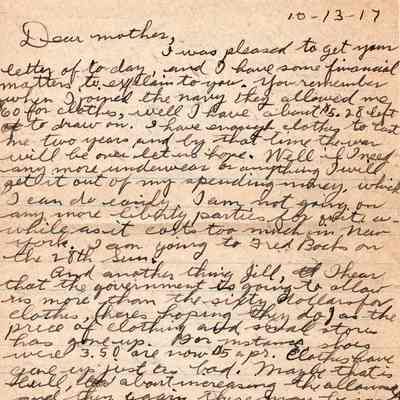 10-13-17
Dear mother,
I was pleased to get your
letter of to day, and I have some financial
matters to explain to you. You remember
when I joined the navy they allowed me
60 for clothes, well I have about 15.28 left
to draw on. I have enough clothes to last
me two years and by that time the war
will be over let us hope. Well if I need
any more underwear or anything I will
get it out of my spending money, which
I can do easily. I am not going on
any more liberty parties for quite a-
while as it costs too much in New
York. I am going to Fred Bochs on
the 28th sun.
And another thing Jill, I hear
that the government is going to allow
us more than the sixty dollars for
clothes, heres hoping they do, as the
price of clothing and small stores
has gone up. For instance shoes
were 3.50 are now 5 a pr. Clothes have
gone up just too bad. Maybe that is
about increasing the allowance